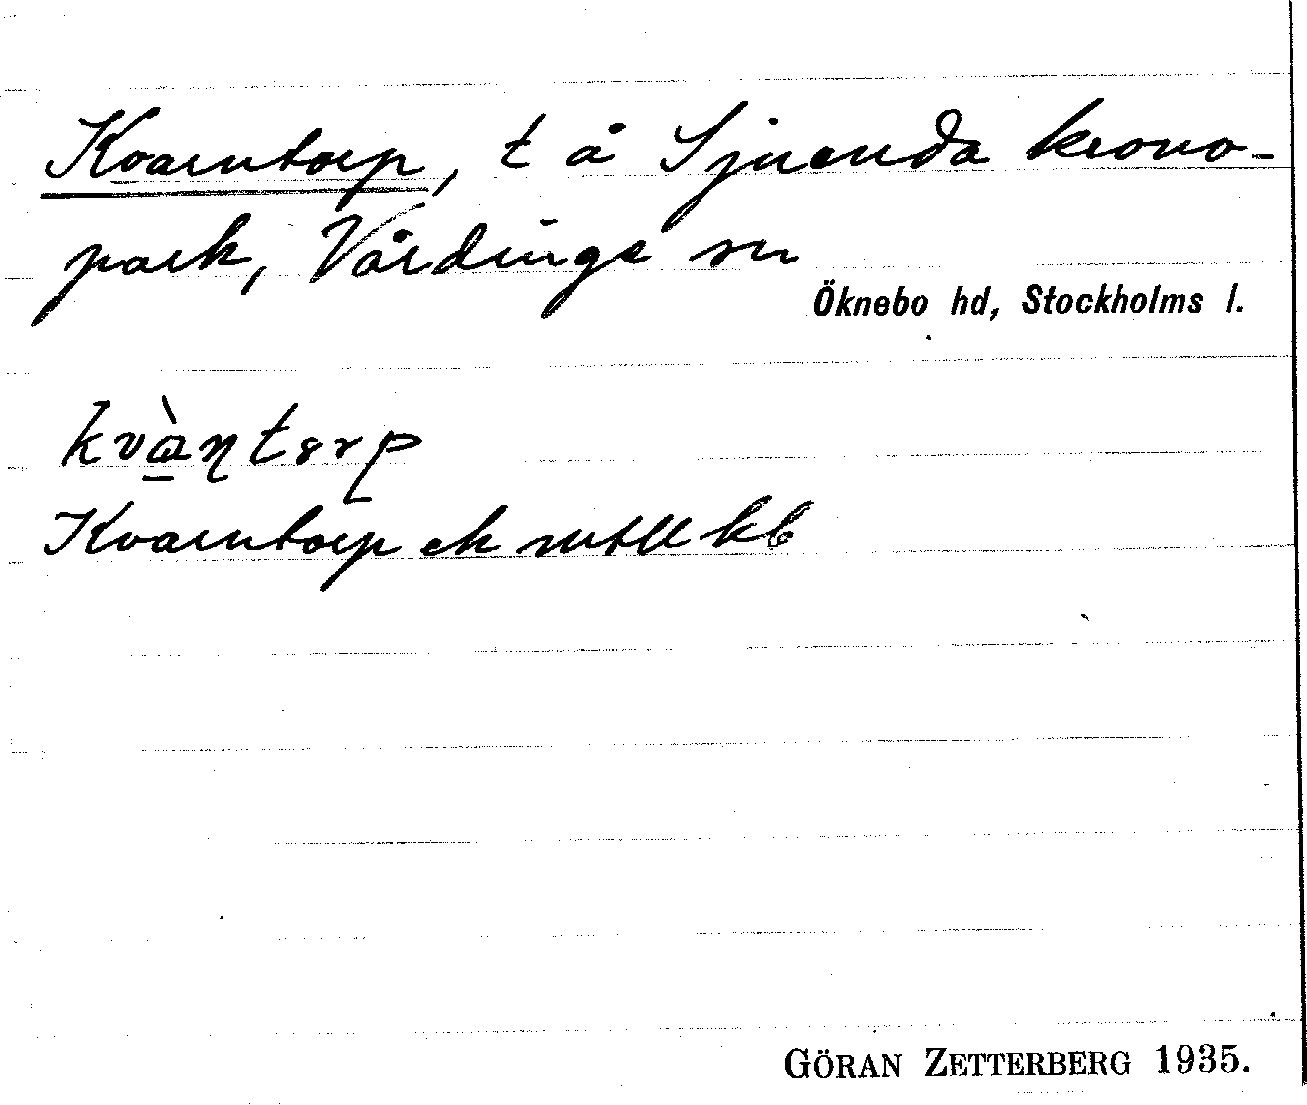 Kvarntorp, t å Sjuenda krono-
park, Vårdinge sn
Öknebo hd, Stockholms l.
kvà̱ṇtɜrp
Kvarntorp ek mtll kb
GÖRAN ZETTERBERG 1935.